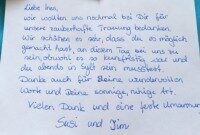 Liebe Ines,
wir wollten uns nochmal bei Dir für
unsere zauberhafte Trauung bedanken.
Wir schätzen es sehr, dass Du es möglich
gemacht hast, an diesem Tag bei uns zu
sein, obwohl es so kurzfristig war und
du abends in Sylt sein musstest.
Danke auch für Deine wundervollen
Worte und Deine sonnige, ruhige Art.
Vielen Dank und eine feste Umarmung
Susi und Jim